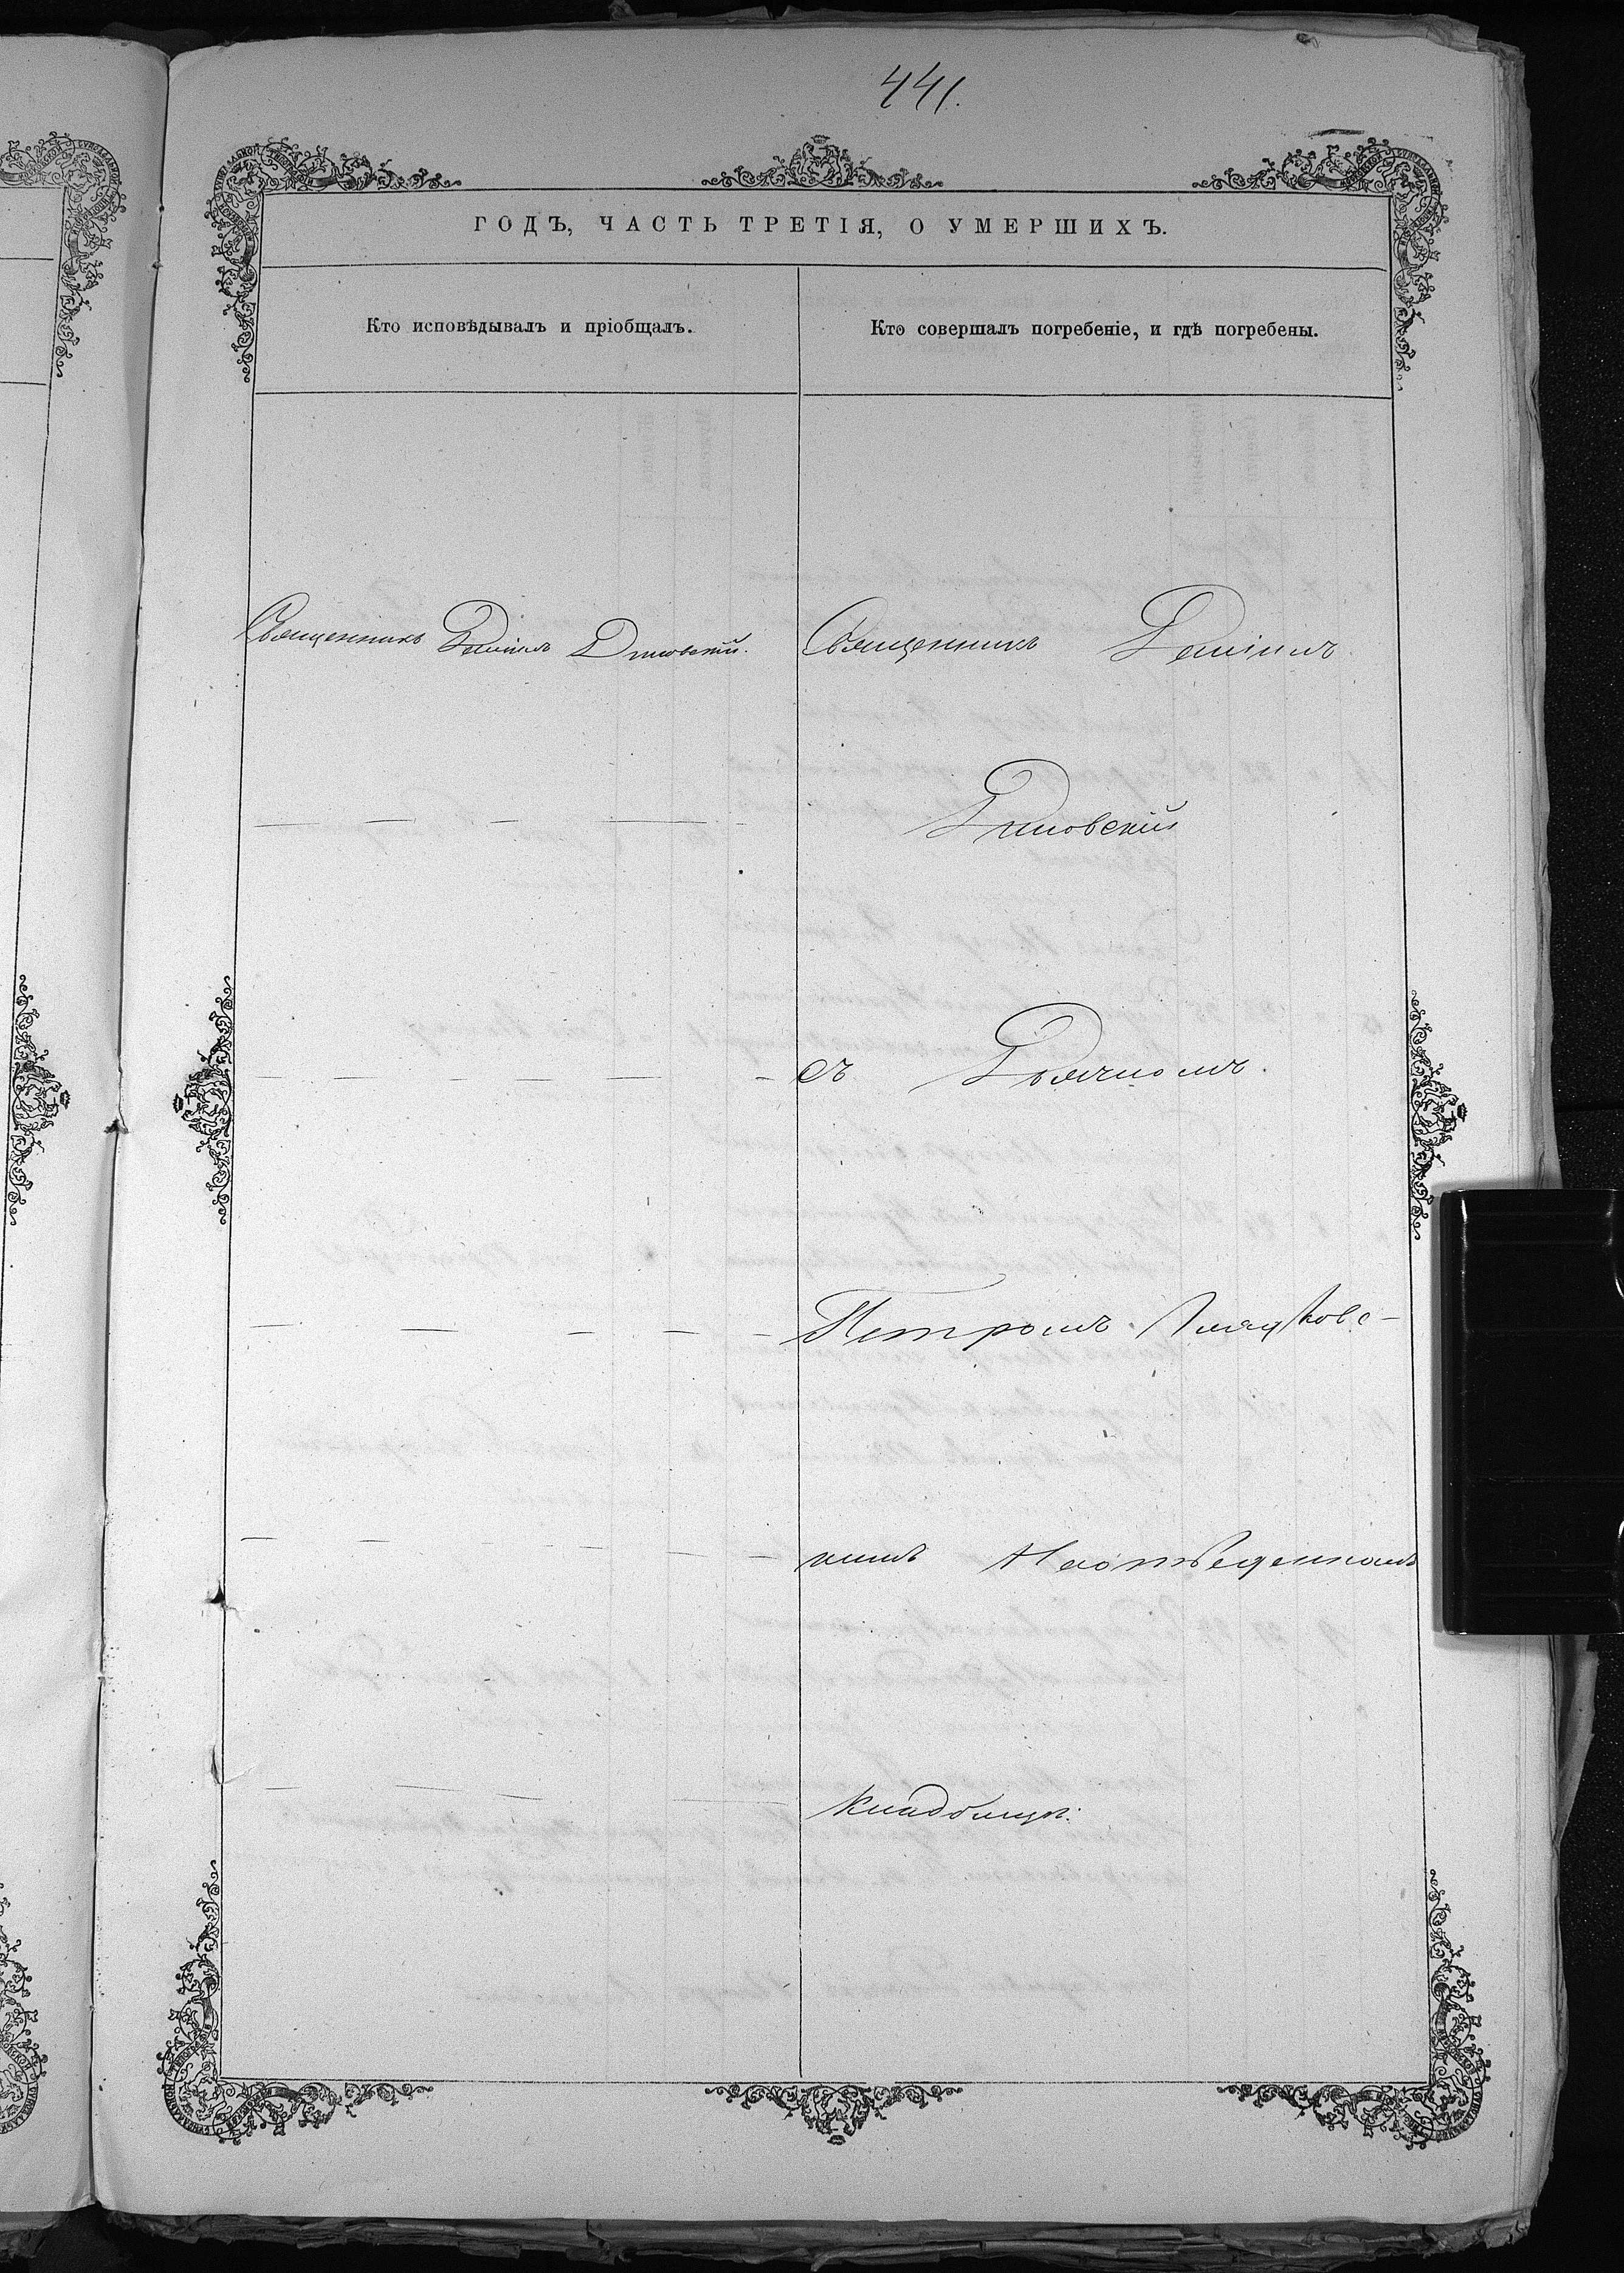 441.
ГОДЪ, ЧАСТЬ ТРЕТІЯ, О УМЕРШИХЪ.
Кто исповѣдывалъ и пріобщалъ.
Кто совершалъ погребеніе, и гдѣ погребены.
Священникъ Даніилъ Дмовскій.
Священникъ Даніилъ
Дмовскій
съ Дьячкомъ
Петромъ
кимъ
кладбищѣ.